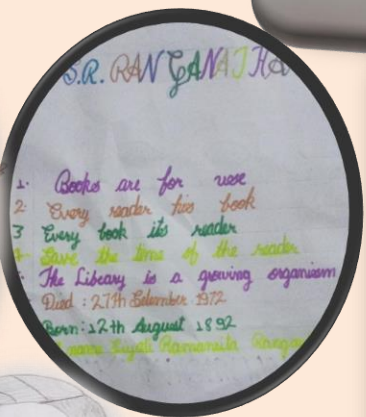 S.R. RANGANATHA
1. Books are for use
2. Every reader his book
3 Every book its reader
4. Save the time of the reader
5. The Library is a growing organism
Died : 27th 1972
Born: 12th August 1892
name Ramamrita Rangan